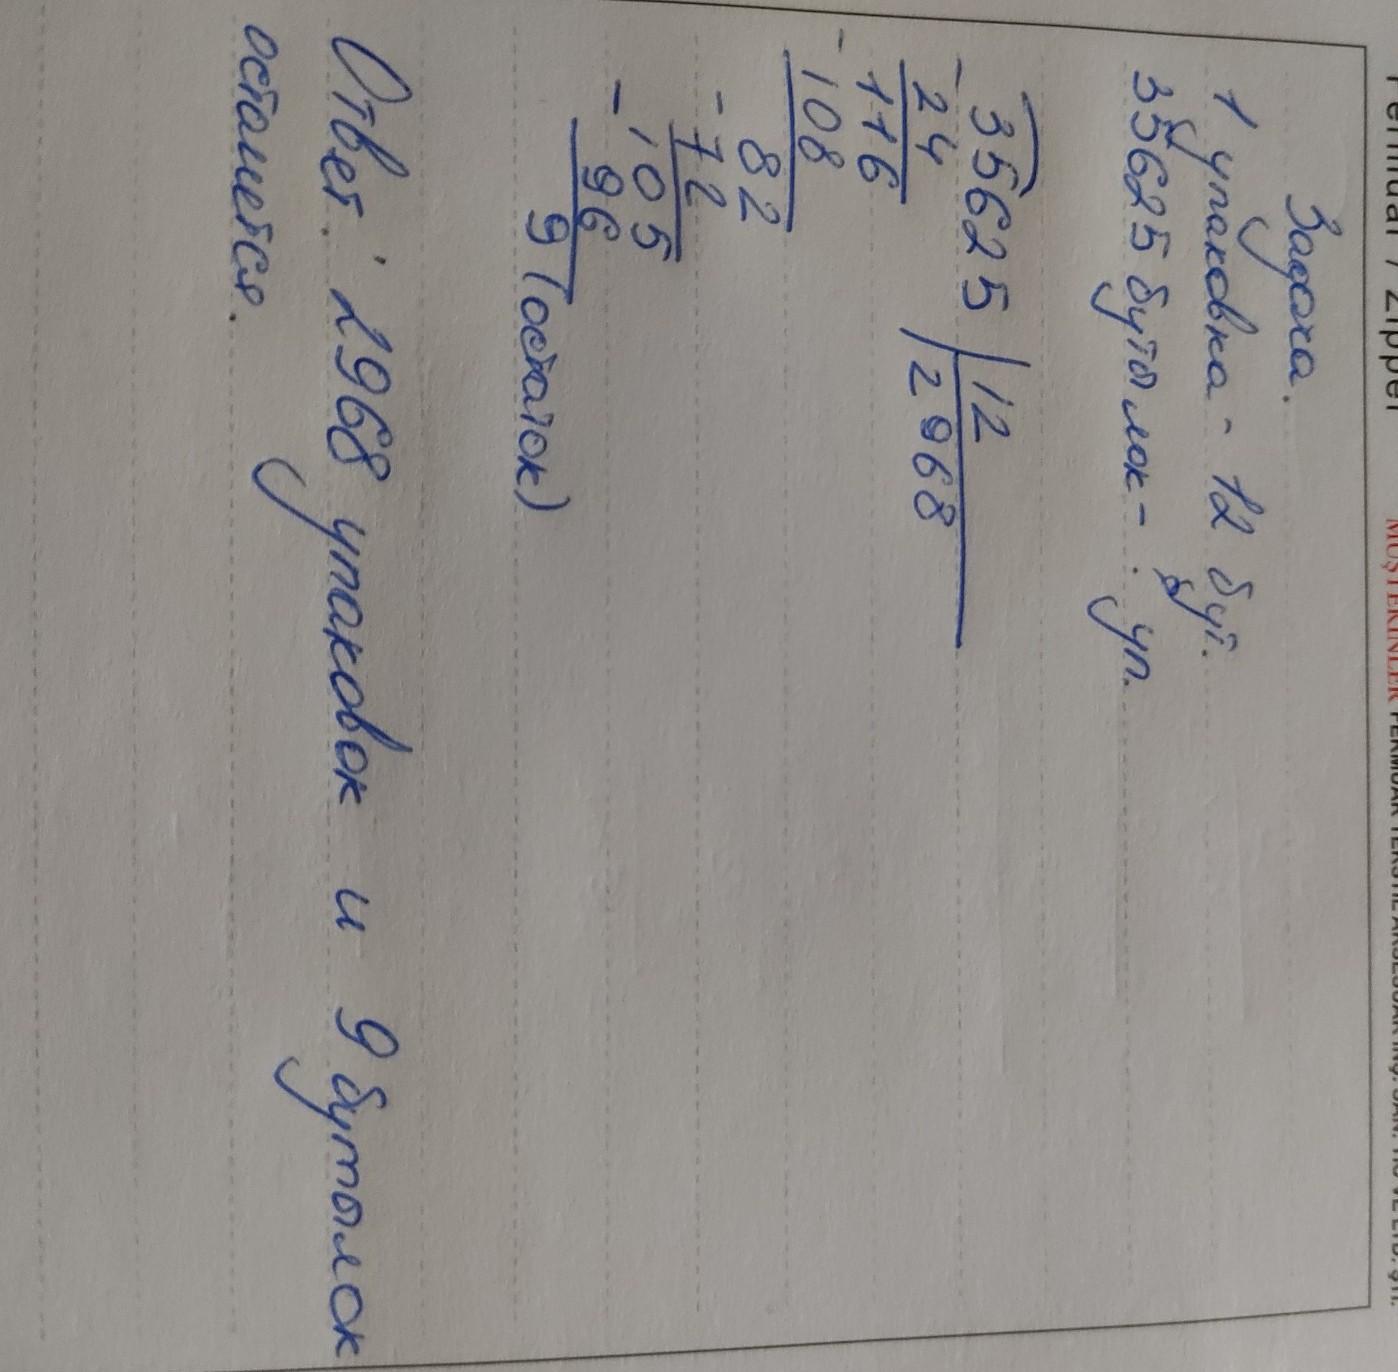 Fermuar / Zipper
MÜŞTERİNLER
Задача.
1 упаковка - 12 бут.
35625 бутылок - уп.
35625 | 12
- 24 | 2968
116
- 108
82
- 72
105
- 96
9 (остаток)
Ответ: 2968 упаковок и 9 бутылок
останется.